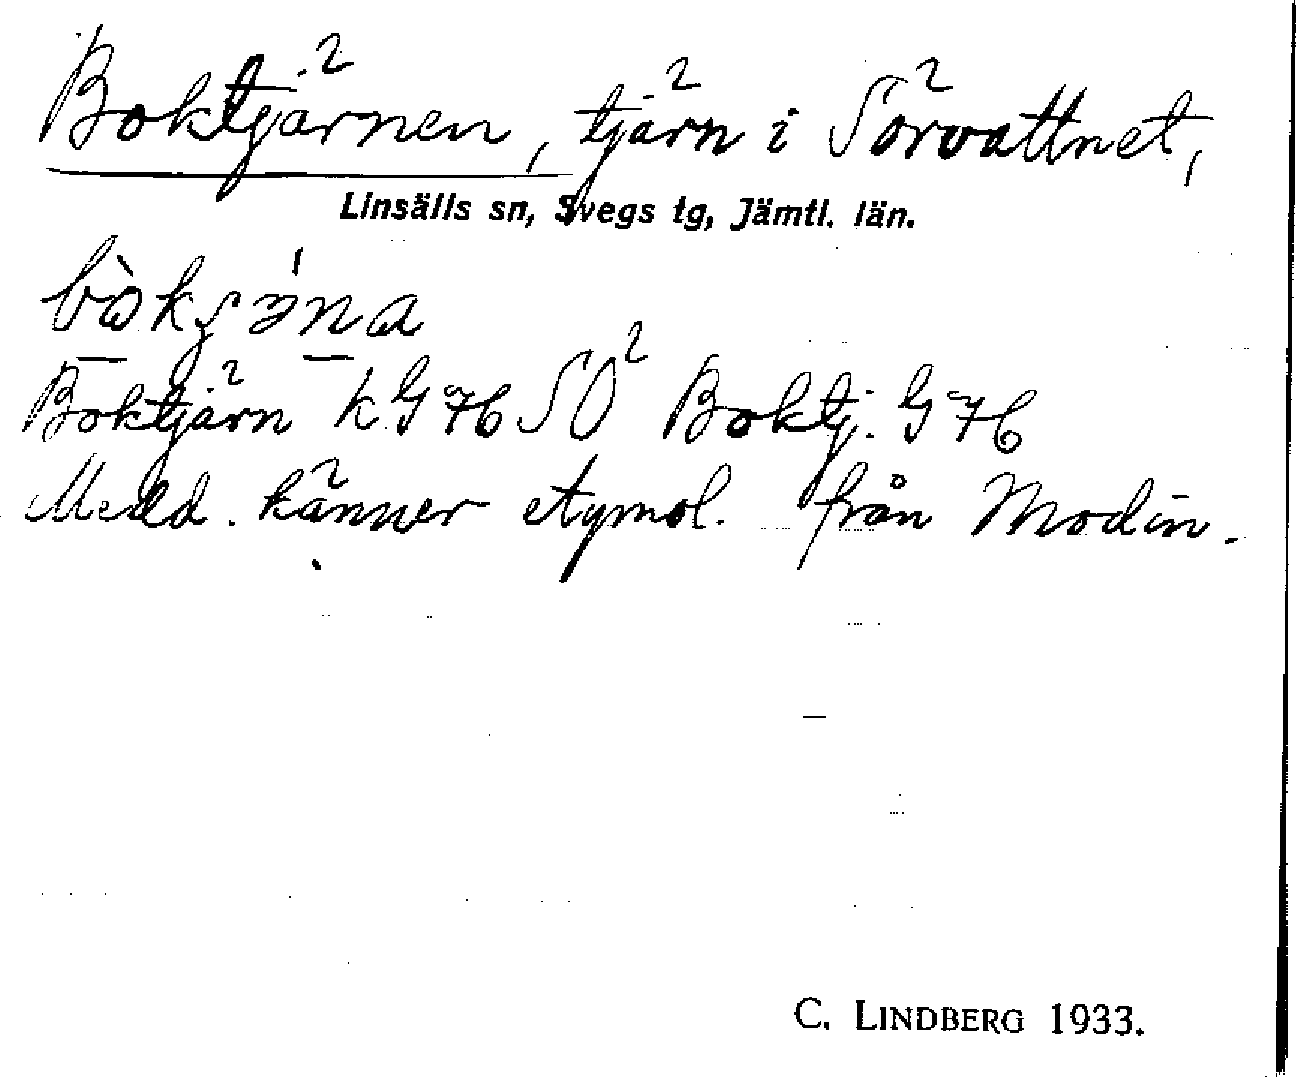 Boktjärnen, tjärn i Sörvattnet,
Linsälls sn, Svegs tg, Jämtl. län.
Boktjärn k G 76 SÖ Boktj. G 76
Medd. känner etymol. från Modin.
C. LINDBERG 1933.